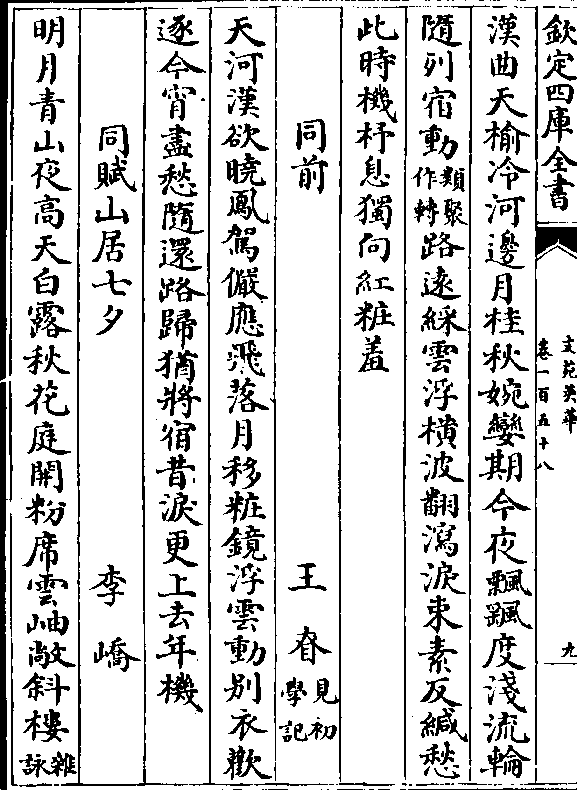 欽定四庫全書
文苑英華
卷一百五十八
九
漢曲天榆冷河邊月桂秋婉孌期今夜飄颻度淺流輪
隨列宿動類聚作轉路遠綵雲浮橫波翻瀉淚束素反緘愁
此時機杼息獨向紅粧羞
同前 王眘見初學記
天河漢欲曉鳳駕儼應飛落月移粧鏡浮雲動別衣歡
逐今宵盡愁隨還路歸猶將宿昔淚更上去年機
同賦山居七夕 李嶠
明月青山夜高天白露秋花庭開粉席雲岫敞斜樓雜詠